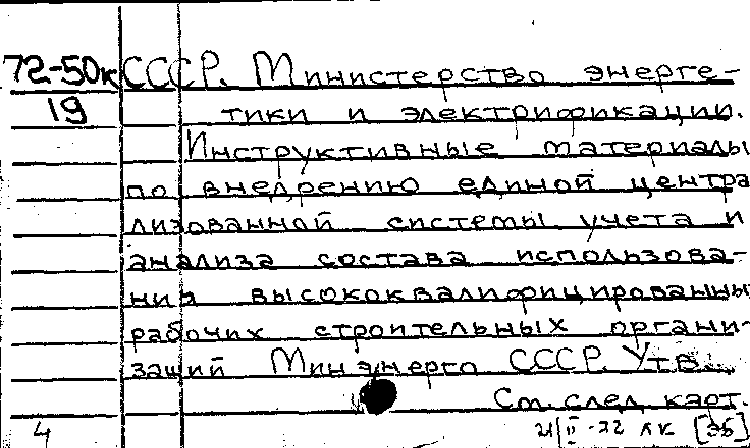 72-50к СССР. Министерство энерге-
19 тики и электрификации.
Инструктивные материалы
по внедрению единой центра
лизованной системы учета и
анализа состава использова-
ния высококвалифицированны
рабочих строительных органи-
заций Минэнерго СССР. Утв.
См. след. карт.
4 II-72 ЛК